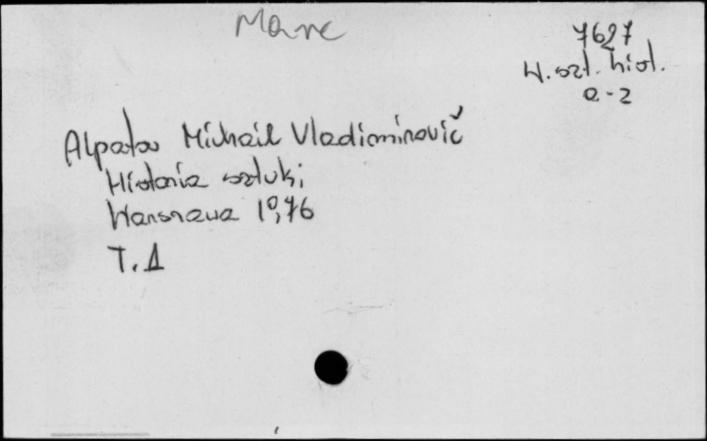 Marc
7627
H. szt. hist.
a-z
Alpatov Michail Vladimirovič
Historia sztuki
Warszawa 1976
T. 1